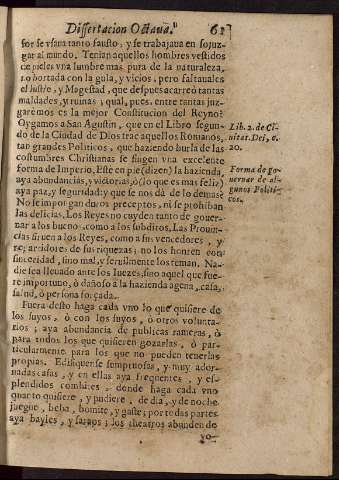 Dissertacion Octaua. 61
for se vsaua tanto fausto; y se trabajaua en sojuz-
gar al mundo. Tenian aquellos hombres vestidos
de pieles vna lumbre mas pura de la naturaleza,
no hortada con la gula, y vicios, pero faltauales
el lustre, y Magestad, que despues acarreò tantas
maldades, y ruinas; qual, pues, entre tantas juz-
garemos es la mejor Constitucion del Reyno?
Oygamos a San Agustin, que en el Libro segun-
do de la Ciudad de Dios trae aquellos Romanos,
tan grandes Politicos, que haziendo burla de las
costumbres Christianas se fingen vna excelente
forma de Imperio. Estè en pie (dizen) la hazienda,
aya abundancias, y victorias, ò (lo que es mas feliz)
aya paz, y seguridad: y que se nos dà de lo demas?
No se impongan duros preceptos, ni se prohiban
las delicias. Los Reyes no cuyden tanto de gouer-
nar a los buenos, como a los subditos. Las Prouin-
cias siruen a los Reyes, como a sus vencedores, y
repartidores de sus riquezas; no los honren con
sinceridad, sino mal, y seruilmente los teman. Na-
die sea lleuado ante los Iuezes, sino aquel que fue-
re importuno, ò dañoso a la hazienda agena, casa,
salud, ò persona forçada.
Fuera desto haga cada vno lo que quisiere de
los suyos, ò con los suyos, ò otros volunta-
rios; aya abundancia de publicas rameras, ò
para todos los que quisieren gozarlas, ò par-
ticularmente para los que no pueden tenerlas
propias. Edifiquense sumptuosas, y muy ador-
nadas casas, y en ellas aya frequentes, y es-
plendidos combites, donde haga cada vno
quanto quisiere, y pudiere, de dia, y de noche,
juegue, beba, bomite, y gaste; por todas partes
aya bayles, y saraos; los theatros abunden de
Lib. 2. de Ci-
uitat. Dei, c.
20.
Forma de go-
uernar de al-
gunos Politi-
cos.